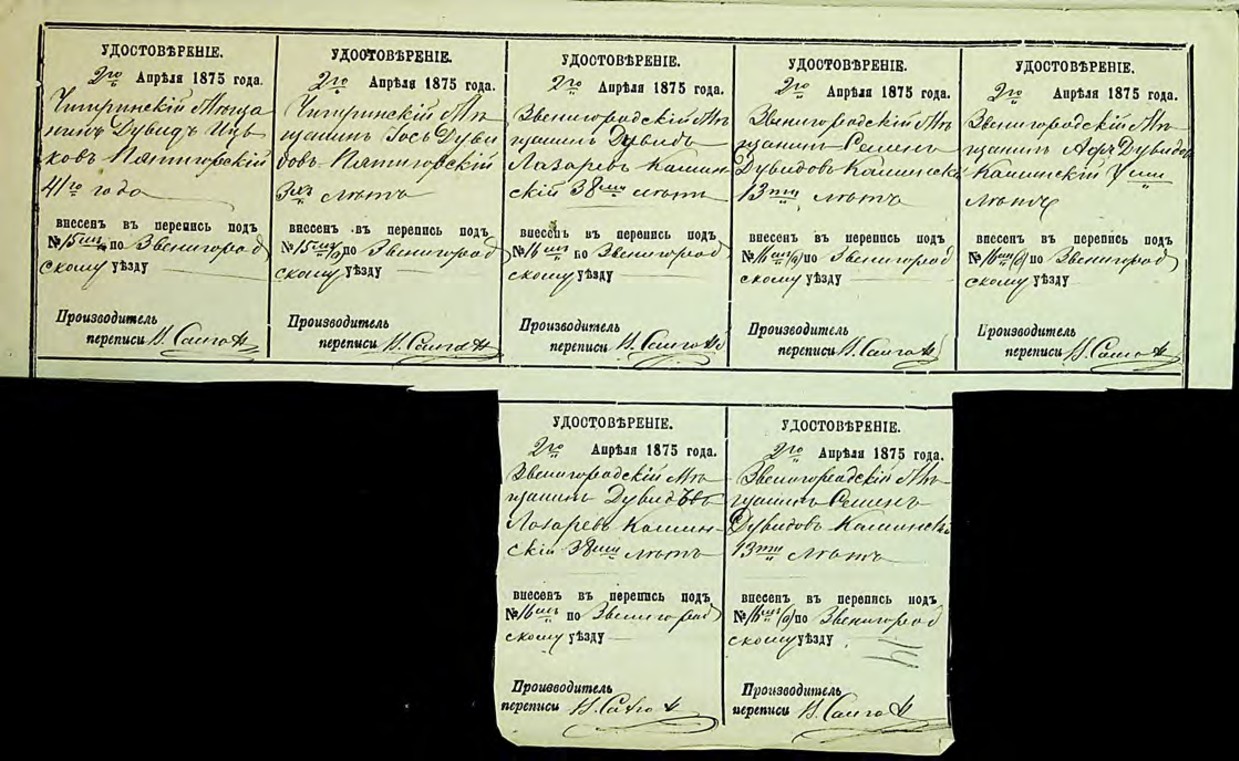 УДОСТОВѢРЕНІЕ.
2го Апрѣля 1875 года.
Чигиринскій Мѣща
нинъ Дувидъ Иць
ковъ Пятигорскій
41го года
внесенъ въ перепись подъ
№ 15 по Звенигород
скому уѣзду
Производитель
переписи
УДОСТОВѢРЕНІЕ.
2го Апрѣля 1875 года.
Чигиринскій Мѣ
щанинъ Іось Дуви
довъ Пятигорскій
3хъ лѣтъ
внесенъ въ перепись подъ
№ 15 (а) по Звенигород
скому уѣзду
Производитель
переписи
УДОСТОВѢРЕНІЕ.
2го Апрѣля 1875 года.
Звенигородскій Мѣ
щанинъ Дувидъ
Лазаревъ Камин
скій 38ми лѣтъ
внесенъ въ перепись подъ
№ 16 по Звенигород
скому уѣзду
Производитель
переписи
УДОСТОВѢРЕНІЕ.
2го Апрѣля 1875 года.
Звенигородскій Мѣ
щанинъ
Дувидовъ Каминскій
13ти лѣтъ
внесенъ въ перепись подъ
№ 16 (а) по Звенигород
скому уѣзду
Производитель
переписи
УДОСТОВѢРЕНІЕ.
2го Апрѣля 1875 года.
Звенигородскій Мѣ
щанинъ Дувидовъ
Каминскій
лѣтъ
внесенъ въ перепись подъ
№ 16 по Звенигород
скому уѣзду
Производитель
переписи
УДОСТОВѢРЕНІЕ.
2го Апрѣля 1875 года.
Звенигородскій Мѣ
щанинъ Дувидъ
Лазаревъ Камин-
скій 38ми лѣтъ
внесенъ въ перепись подъ
№ 16 по Звенигород
скому уѣзду
Производитель
переписи
УДОСТОВѢРЕНІЕ.
2го Апрѣля 1875 года.
Звенигородскій Мѣ
щанинъ
Дувидовъ Каминскій
13ти лѣтъ
внесенъ въ перепись подъ
№ 16 (а) по Звенигород
скому уѣзду
Производитель
переписи